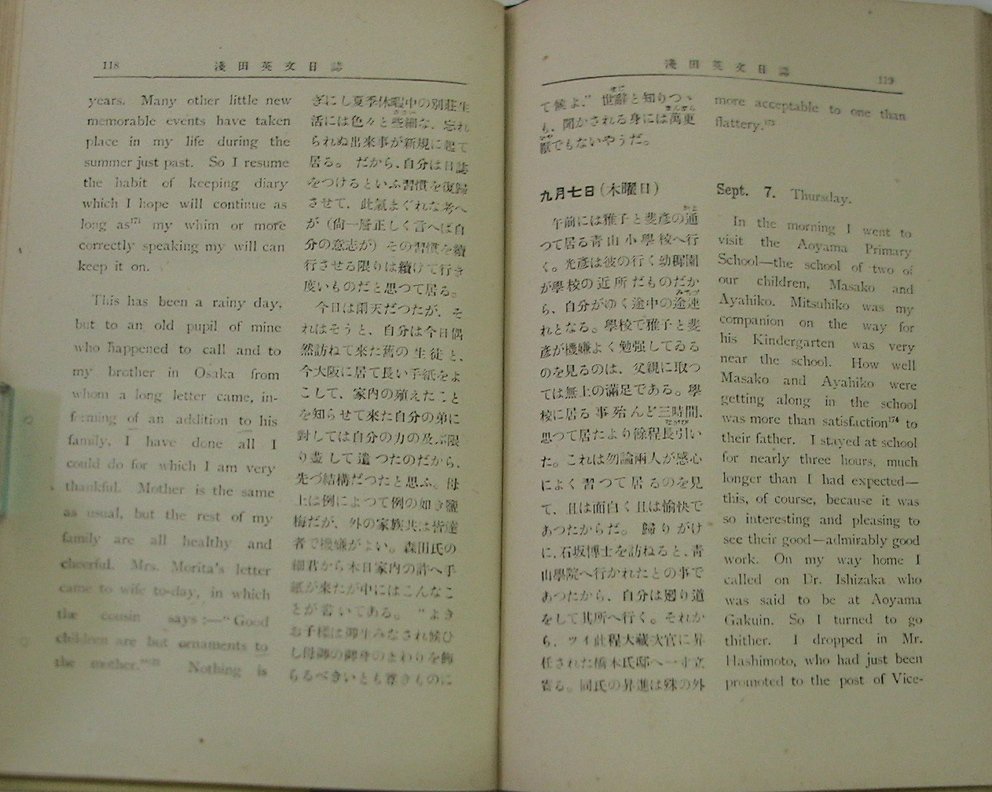 118
淺田英文日誌
years. Many other little new
memorable events have taken
place in my life during the
summer just past. So I resume
the habit of keeping diary
which I hope will continue as
long as¹⁷¹ my whim or more
correctly speaking my will can
keep it on.
This has been a rainy day,
but to an old pupil of mine
who happened to call and to
my brother in Osaka from
whom a long letter came, in-
forming of an addition to his
family, I have done all I
could do for which I am very
thankful. Mother is the same
as usual, but the rest of my
family are all healthy and
cheerful. Mrs. Morita's letter
came to wife to-day, in which
the cousin says:—"Good
children are but ornaments to
the mother." Nothing is
ぎにし夏季休暇中の別莊生
活には色々と些細な、忘れ
られぬ出來事が新規に起て
居る。だから、自分は日誌
をつけるといふ習慣を復歸
させて、此氣まぐれな考へ
が（尙一層正しく言へば自
分の意志が）その習慣を續
行させる限りは續けて行き
度いものだと思つて居る。
今日は雨天だつたが、そ
れはそうと、自分は今日偶
然訪ねて來た舊の生徒と、
今大阪に居て長い手紙をよ
こして、家内の殖えたこと
を知らせて來た自分の弟に
對しては自分の力の及ぶ限
り盡して遣つたのだから、
先づ結構だつたと思ふ。母
上は例によつて例の如き鹽
梅だが、外の家族共は皆達
者で機嫌がよい。森田氏の
細君から本日家内の許へ手
紙が來たが中にはこんなこ
とが書いてある。"よき
お子樣は御生みなされ候ひ
し母御の御身のまわりを飾
らるべきいとも尊きものに
淺田英文日誌
119
て候よ。"世辭と知りつゝ
も、聞かされる身には萬更
厭でもないやうだ。
九月七日（木曜日）
午前には雅子と斐彥の通
つて居る青山小學校へ行
く。光彥は彼の行く幼稚園
が學校の近所だものだか
ら、自分がゆく途中の途連
れとなる。學校で雅子と斐
彥が機嫌よく勉强してゐる
のを見るのは、父親に取つ
ては無上の滿足である。學
校に居る事殆んど三時間、
思つて居たより餘程長引い
た。これは勿論兩人が感心
によく習つて居るのを見
て、且は面白く且は愉快で
あつたからだ。歸りがけ
に、石坂博士を訪ねると、青
山學院へ行かれたとの事で
あつたから、自分は廻り道
をして其所へ行く。それか
ら、ツイ此程大藏次官に昇
任された橋本氏邸へ一寸立
寄る。同氏の昇進は殊の外
more acceptable to one than
flattery.¹⁷³
Sept. 7. Thursday.
In the morning I went to
visit the Aoyama Primary
School—the school of two of
our children, Masako and
Ayahiko. Mitsuhiko was my
companion on the way for
his Kindergarten was very
near the school. How well
Masako and Ayahiko were
getting along in the school
was more than satisfaction¹⁷⁴ to
their father. I stayed at school
for nearly three hours, much
longer than I had expected—
this, of course, because it was
so interesting and pleasing to
see their good—admirably good
work. On my way home I
called on Dr. Ishizaka who
was said to be at Aoyama
Gakuin. So I turned to go
thither. I dropped in Mr.
Hashimoto, who had just been
promoted to the post of Vice-